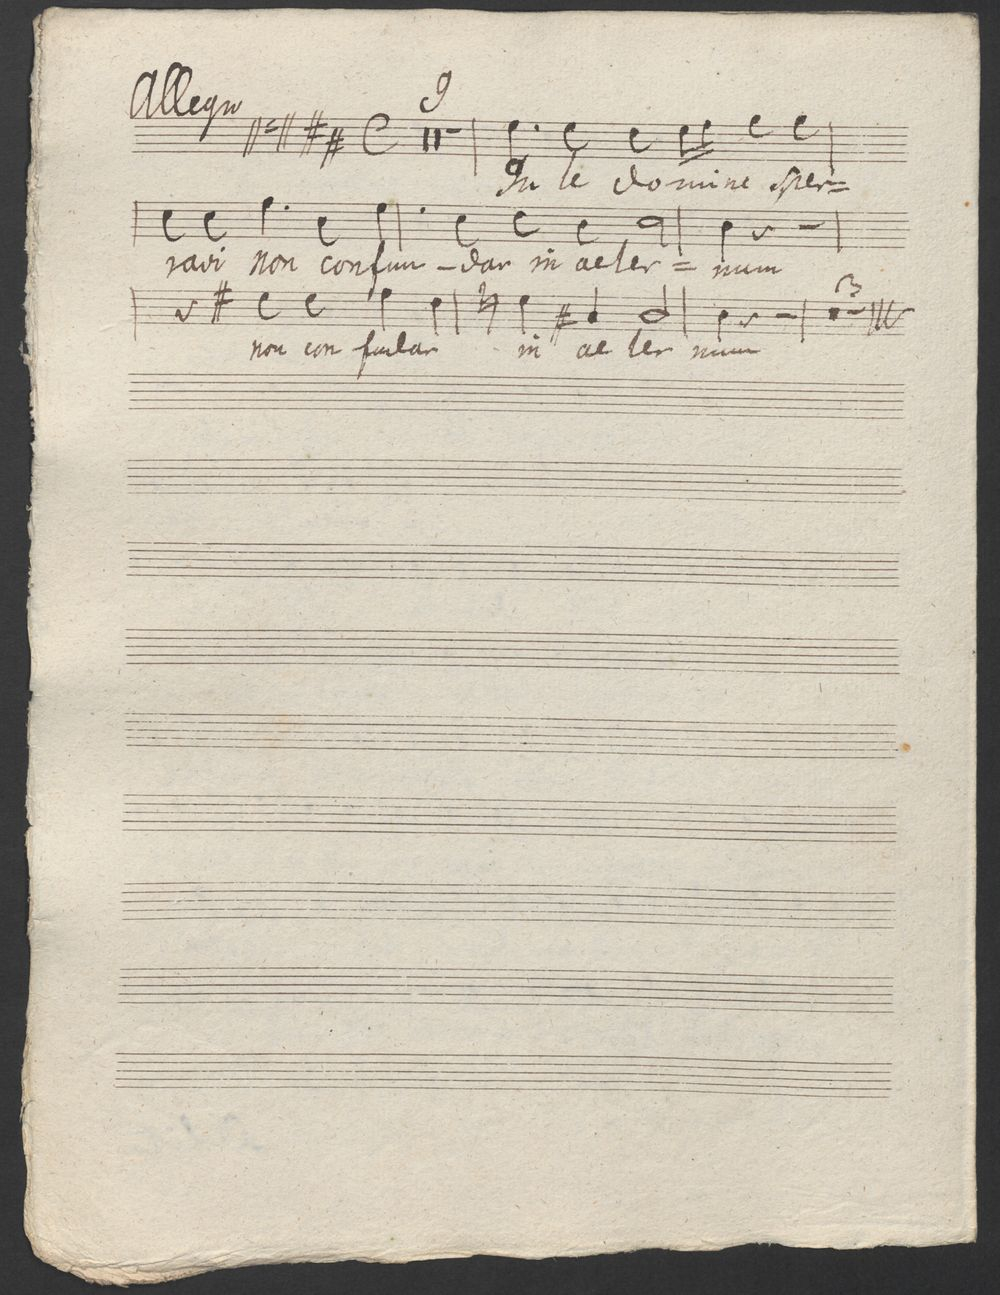 Allegro
9
In te domine sper=
ravi non confun - dar in aeter = num
3
non con fudar in ae ter num